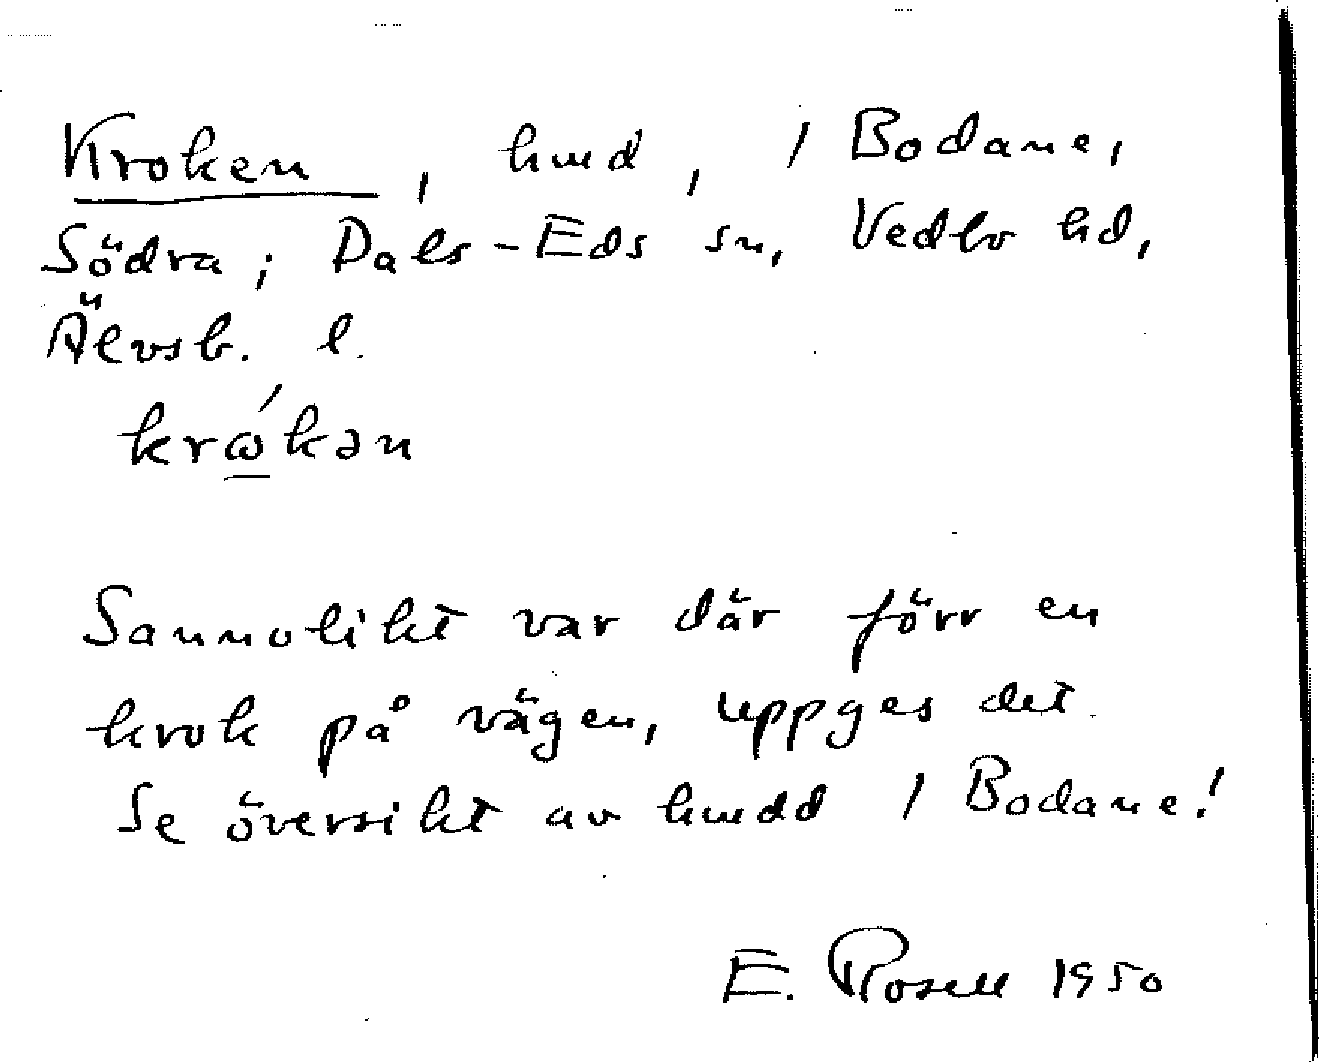 Kroken, hmd, / Bodane,
Södra; Dals-Eds sn, Vedbo hd,
Älvsb. l.
krώ̲kən
Sannolikt var där förr en
krok på vägen, uppges det.
Se översikt av hmdd / Bodane!
E. Rosell 1950